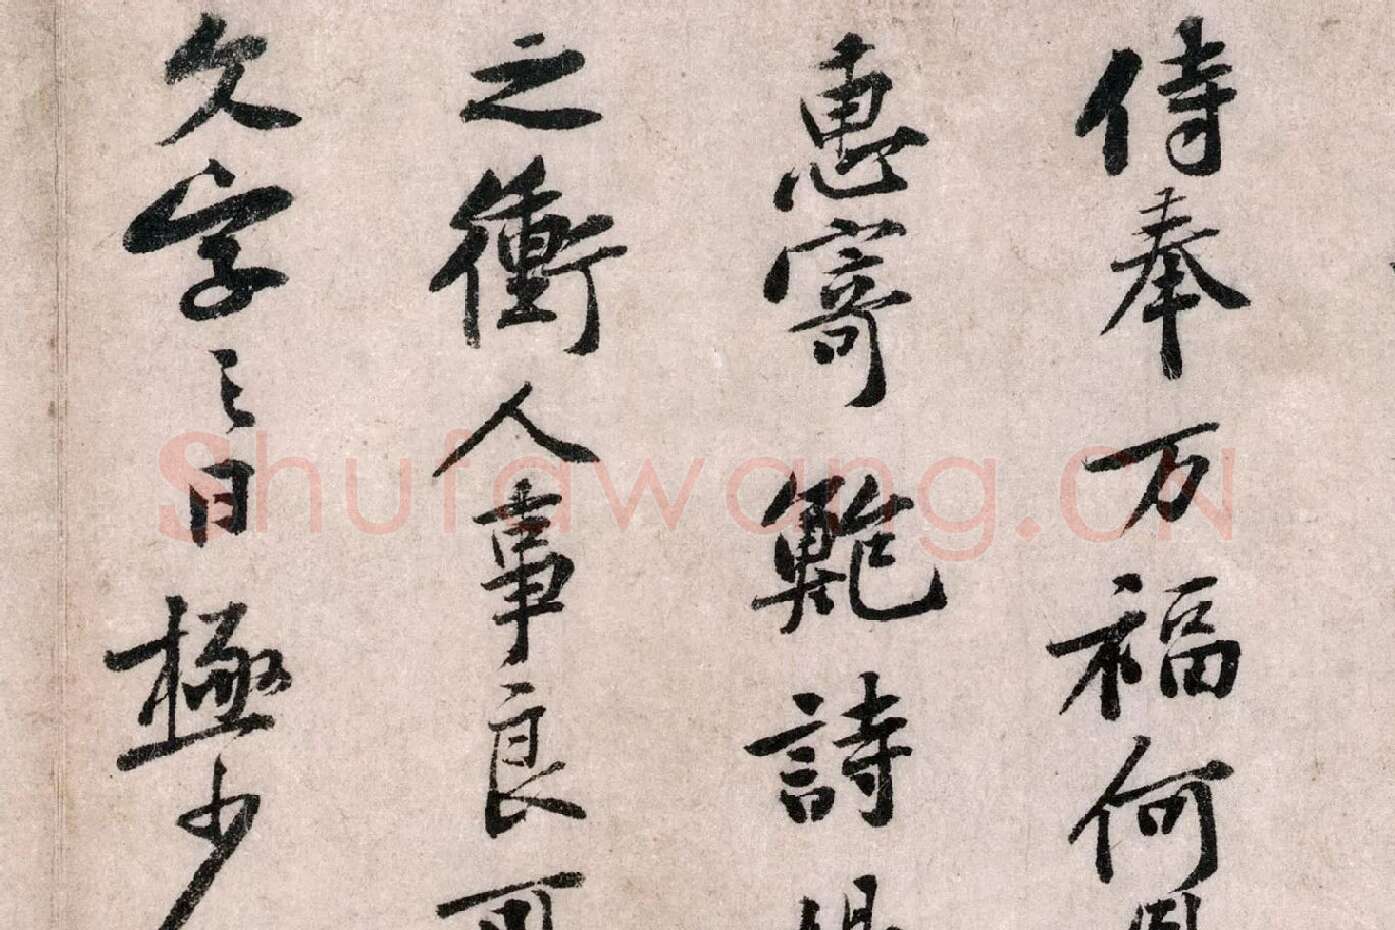 侍奉万福何
惠寄鲍詩
之衝人事良
文字之日極少
Shufawang.CN